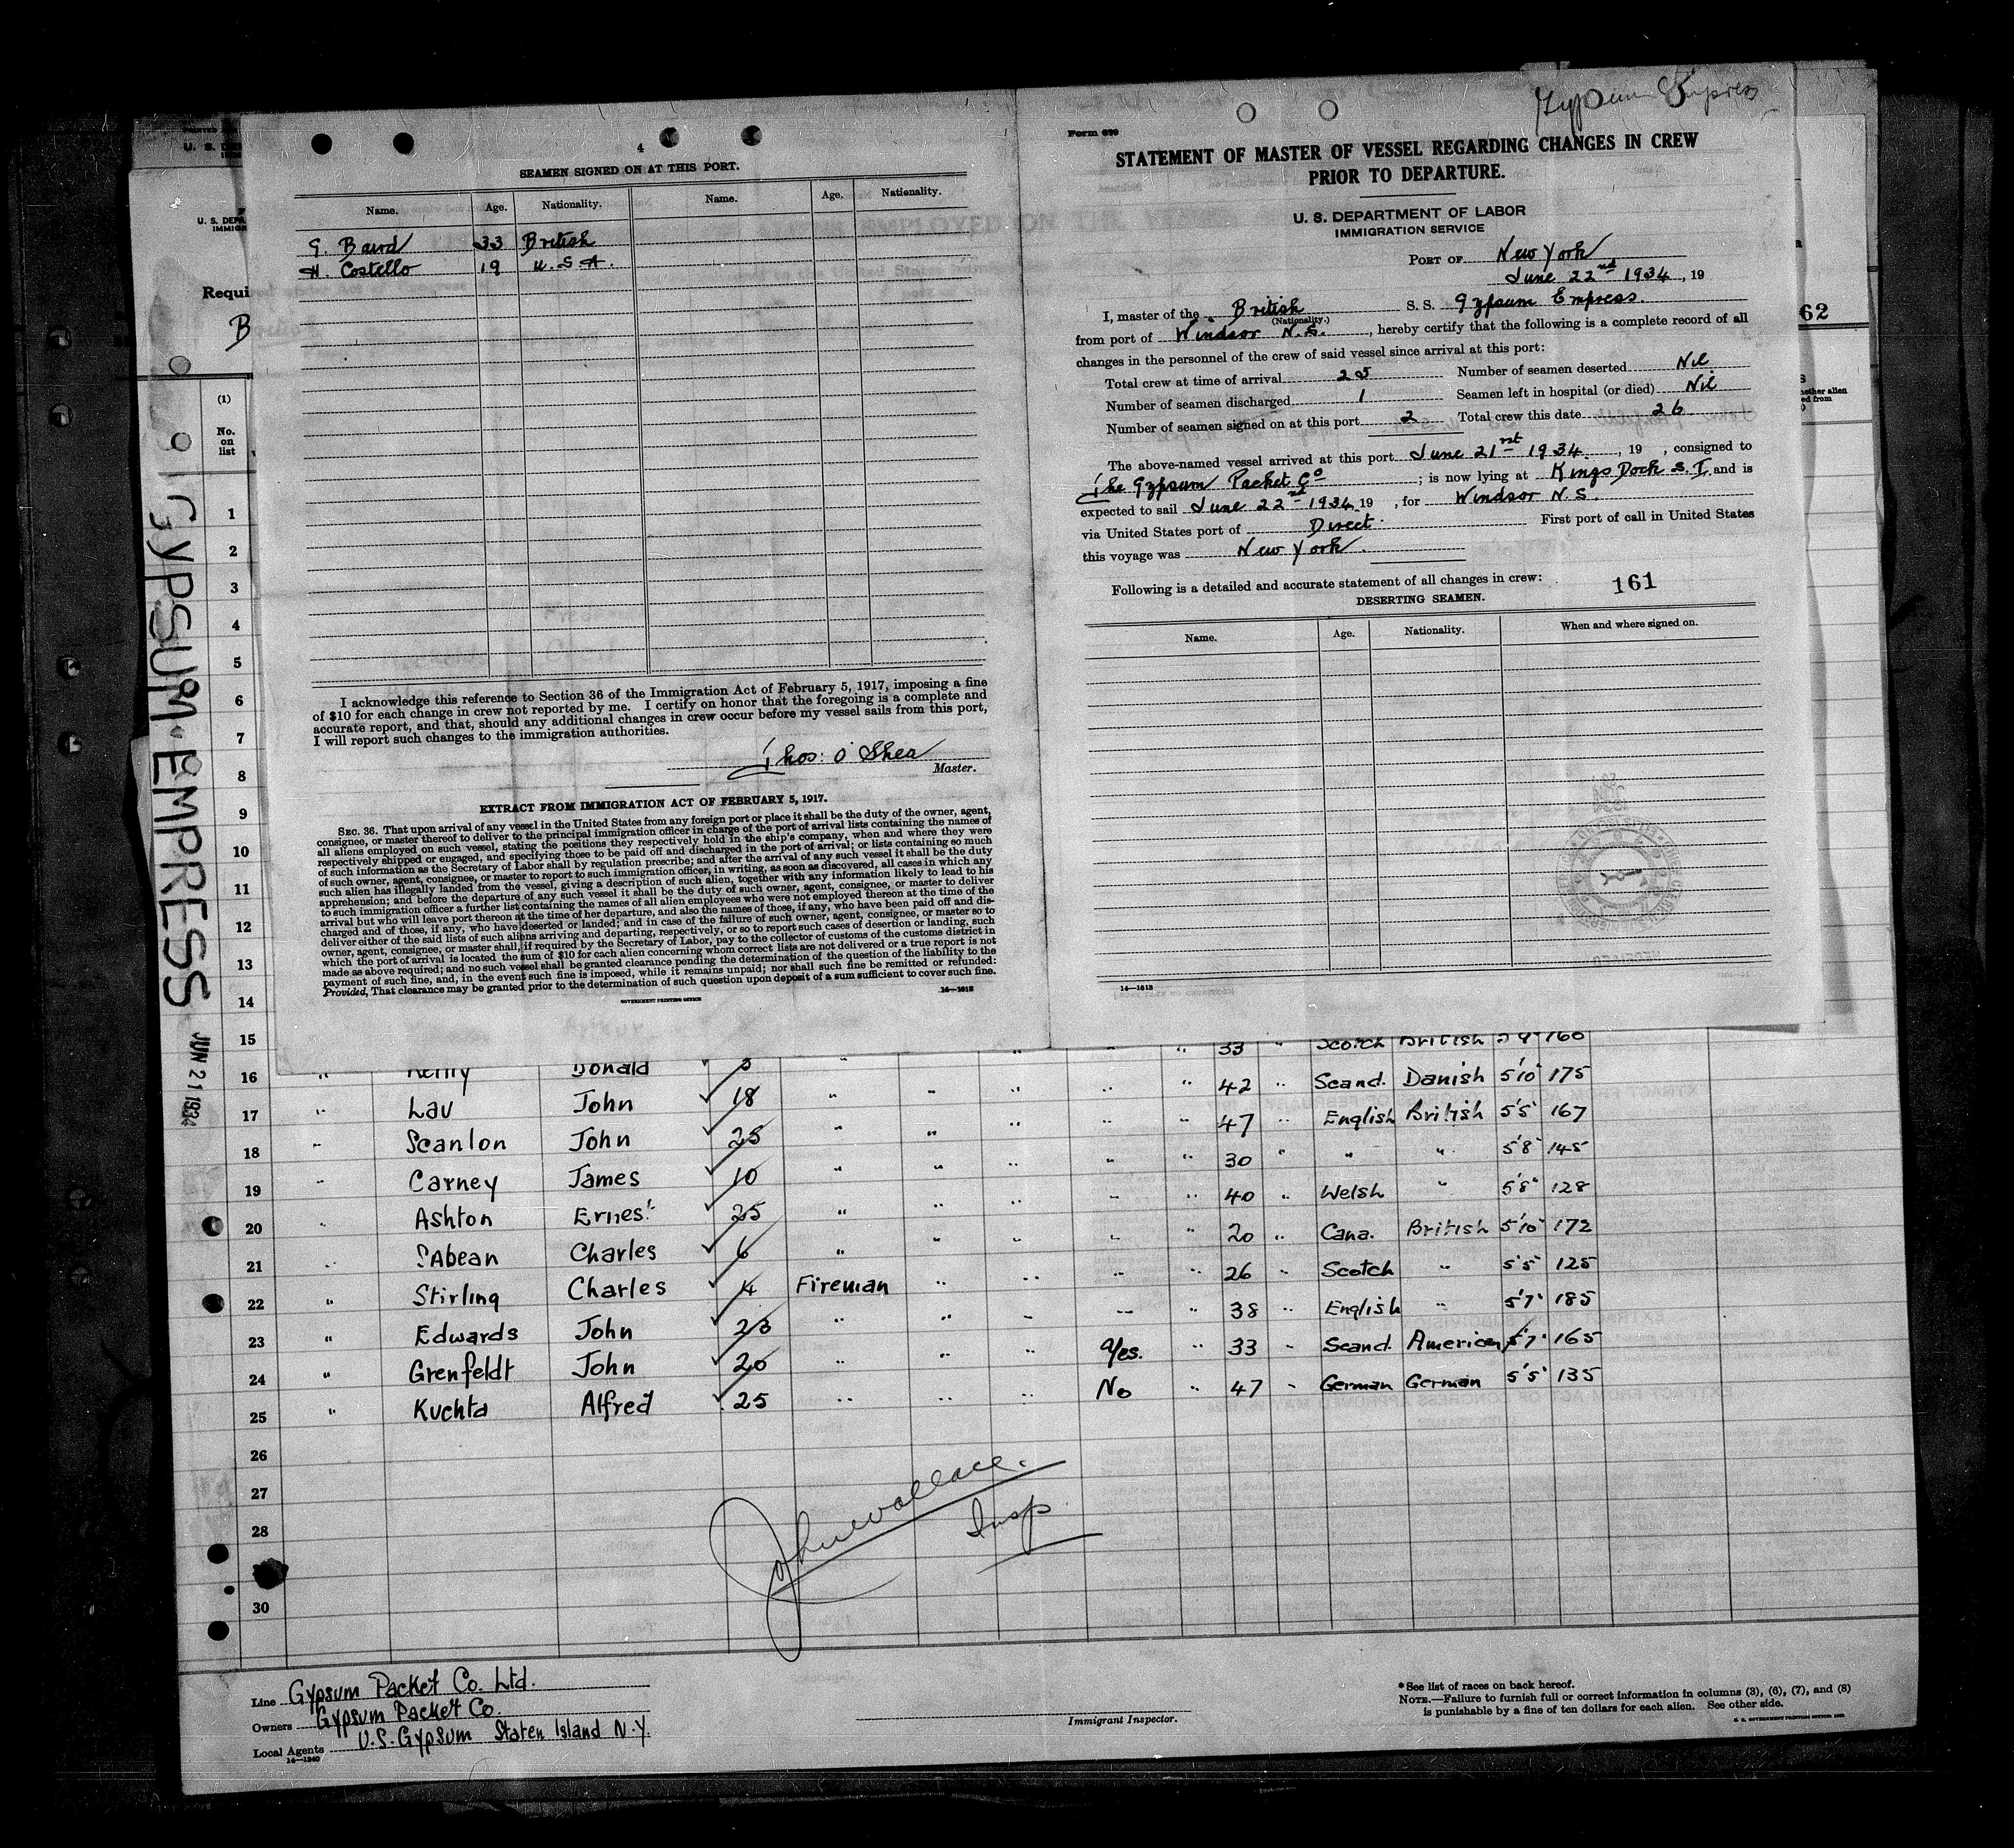 Gypsum Empress
4
SEAMEN SIGNED ON AT THIS PORT.
Name. Age. Nationality. Name. Age. Nationality.
G. Baird 33 British
H. Costello 19 U.S.A.
I acknowledge this reference to Section 36 of the Immigration Act of February 5, 1917, imposing a fine
of $10 for each change in crew not reported by me. I certify on honor that the foregoing is a complete and
accurate report, and that, should any additional changes in crew occur before my vessel sails from this port,
I will report such changes to the immigration authorities.
Thos: O'Shea
Master.
EXTRACT FROM IMMIGRATION ACT OF FEBRUARY 5, 1917.
SEC. 36. That upon arrival of any vessel in the United States from any foreign port or place it shall be the duty of the owner, agent,
consignee, or master thereof to deliver to the principal immigration officer in charge of the port of arrival lists containing the names of
all aliens employed on such vessel, stating the positions they respectively hold in the ship's company, when and where they were
respectively shipped or engaged, and specifying those to be paid off and discharged in the port of arrival; or lists containing so much
of such information as the Secretary of Labor shall by regulation prescribe; and after the arrival of any such vessel it shall be the duty
of such owner, agent, consignee, or master to report to such immigration officer, in writing, as soon as discovered, all cases in which any
such alien has illegally landed from the vessel, giving a description of such alien, together with any information likely to lead to his
apprehension; and before the departure of any such vessel it shall be the duty of such owner, agent, consignee, or master to deliver
to such immigration officer a further list containing the names of all alien employees who were not employed thereon at the time of the
arrival but who will leave port thereon at the time of her departure, and also the names of those, if any, who have been paid off and dis-
charged and of those, if any, who have deserted or landed; and in case of the failure of such owner, agent, consignee, or master so to
deliver either of the said lists of such aliens arriving and departing, respectively, or so to report such cases of desertion or landing, such
owner, agent, consignee, or master shall, if required by the Secretary of Labor, pay to the collector of customs of the customs district in
which the port of arrival is located the sum of $10 for each alien concerning whom correct lists are not delivered or a true report is not
made as above required; and no such vessel shall be granted clearance pending the determination of the question of the liability to the
payment of such fine, and, in the event such fine is imposed, while it remains unpaid; nor shall such fine be remitted or refunded:
Provided, That clearance may be granted prior to the determination of such question upon deposit of a sum sufficient to cover such fine.
GOVERNMENT PRINTING OFFICE 14—1613
Form 689
STATEMENT OF MASTER OF VESSEL REGARDING CHANGES IN CREW
PRIOR TO DEPARTURE.
U. S. DEPARTMENT OF LABOR
IMMIGRATION SERVICE
PORT OF New York
June 22nd 1934, 19
I, master of the British S. S. Gypsum Empress.
(Nationality.)
from port of Windsor N.S., hereby certify that the following is a complete record of all
changes in the personnel of the crew of said vessel since arrival at this port:
Total crew at time of arrival 25 Number of seamen deserted Nil
Number of seamen discharged 1 Seamen left in hospital (or died) Nil
Number of seamen signed on at this port 2 Total crew this date 26
The above-named vessel arrived at this port June 21st 1934, 19 , consigned to
The Gypsum Packet Co ; is now lying at Kings Dock S.I. and is
expected to sail June 22nd 1934, 19 , for Windsor N.S.
via United States port of Direct. First port of call in United States
this voyage was New York.
Following is a detailed and accurate statement of all changes in crew:
161
DESERTING SEAMEN.
Name. Age. Nationality. When and where signed on.
14—1613
62
Requi
B
(1)
No. on list
GYPSUM EMPRESS
JUN 21 1934
1
2
3
4
5
6
7
8
9
10
11
12
13
14
15 33 " Scotch British 160
16 " Donald " 42 " Scand. Danish 5'10" 175
17 " Lau John 18 " " " " " 47 " English British 5'5" 167
18 " Scanlon John 25 " " " " " 30 " " " 5'8" 145
19 " Carney James 10 " " " " " 40 " Welsh " 5'8" 128
20 " Ashton Ernest 25 " " " " 20 " Cana. British 5'10" 172
21 " SAbean Charles 6 " " " " " 26 " Scotch " 5'5" 125
22 " Stirling Charles 4 Fireman " " " " 38 " English " 5'7" 185
23 " Edwards John 23 " " " Yes. " 33 " Scand. American 5'7" 165
24 " Grenfeldt John 20 " " " No " 47 " German German 5'5" 135
25 " Kuchta Alfred 25 " " "
26
27
28
30
John Wallace.
Insp
Line Gypsum Packet Co. Ltd.
Owners Gypsum Packet Co.
Local Agents U.S. Gypsum Staten Island N.Y.
14—1240
Immigrant Inspector.
*See list of races on back hereof.
NOTE.—Failure to furnish full or correct information in columns (3), (6), (7), and (8)
is punishable by a fine of ten dollars for each alien. See other side.